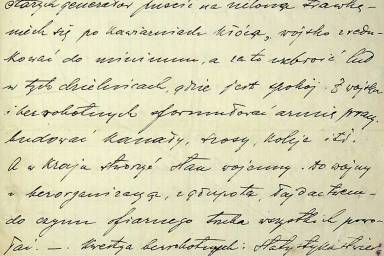 starych generałów puścić na zieloną trawkę,
niech się po kawiarniach kłócą, wojsko zredu-
kować do minimum, a za to uzbroić lud
w tych dzielnicach, gdzie jest spokój. Z wojska
i bezrobotnych sformułować armię pracy
budować kanały, szosy, koleje itd.
A w kraju stworzyć stan wojenny. Do wojny
z bezorganizacją, z głupotą, łajdactwem
do czynu ofiarnego trzeba wszystkich powo-
łać. — Kwestya bezrobotnych: Statystyka